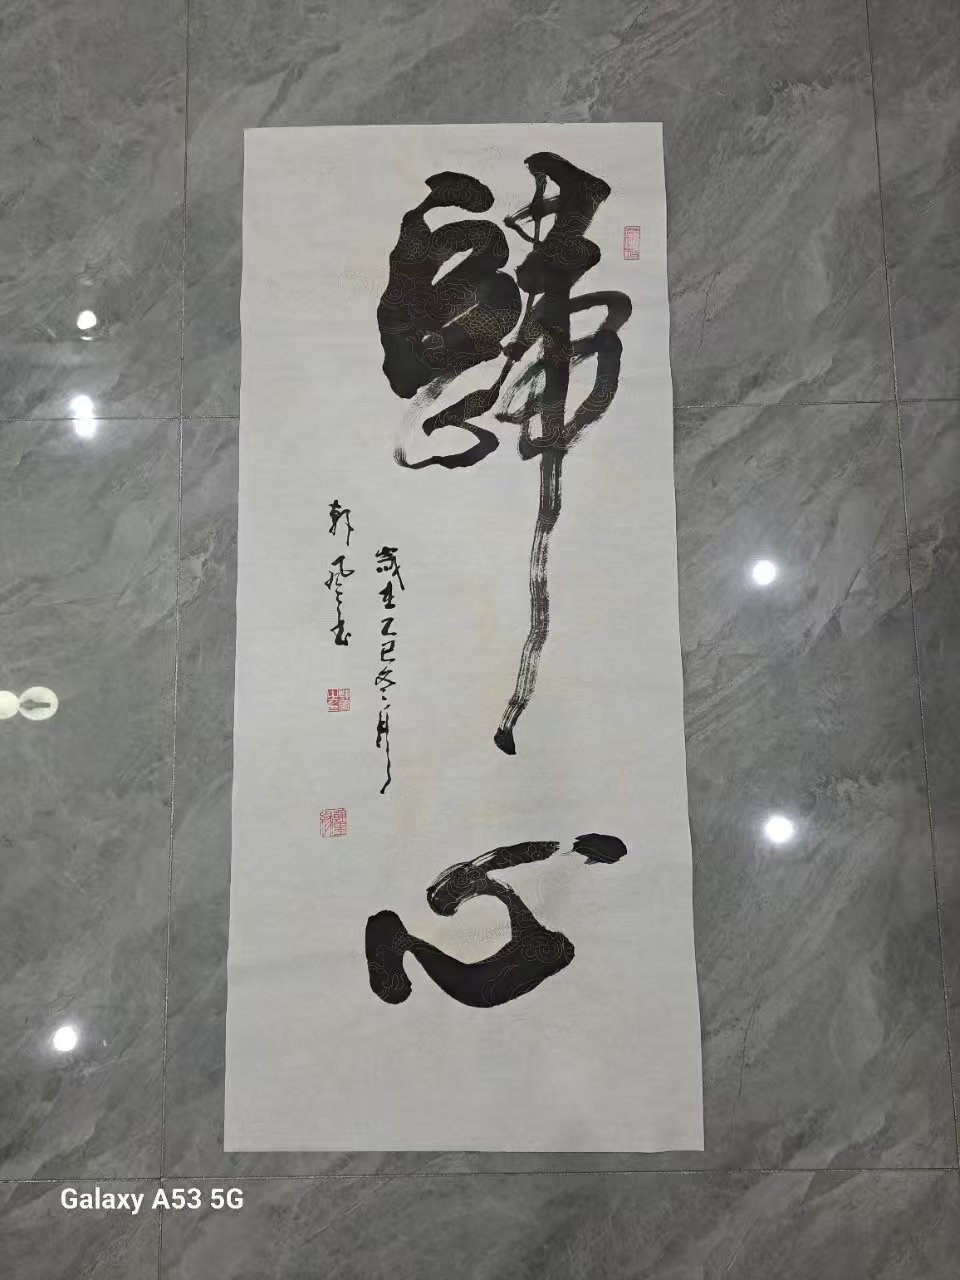 歸心
歲在乙巳冬月
韓風之書
Galaxy A53 5G